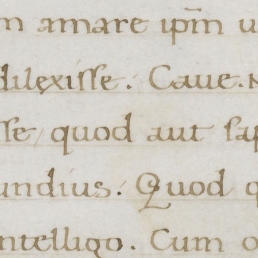 m amare ip̄m u
dilexisse. Caue. N
sse, quod aut sap
undius. Quod q
ntelligo. Cum o